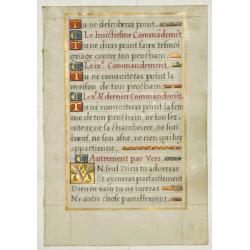 Tu ne desroberas point.
Le huictiesme Commandemēt
Tu ne diras point faux tesmoi
gnage contre ton prochain
Le ix.e Commandement.
Tu ne conuoiteras point la
maison de ton prochain
Le x.e & dernier Commandemēt
Tu ne conuoiteras point la fem
me de ton prochain, ne son ser
uiteur, ne sa chambriere, ne son
beuf, ne son asne, ne rien qui luy
appartienne.
Autrement par Vers
Vn seul Dieu tu adoreras
Et aymeras parfaitement
Dieu en vain tu ne iureras
Ne autre chose pareillement